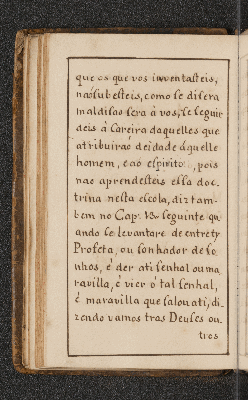 que os que vos inventasteis,
naõ subesteis, como se disera
maldisaõ sera à vos, se seguir
deis à Careira daquelles que
atribuiraõ deidade aquelle
homem, e ao espirito: , pois
nao aprendesteis essa doc-
trina nesta escola, diz tam-
bem no Cap: 13 seguinte qu-
ando se levantare de entre ty
Profeta, ou sonhador de so-
nhos, è der ati senhal ou ma
ravilla, è vier ó tal senhal,
è maravilla que falou ati, di-
zendo vamos tras Deuses ou-
tros